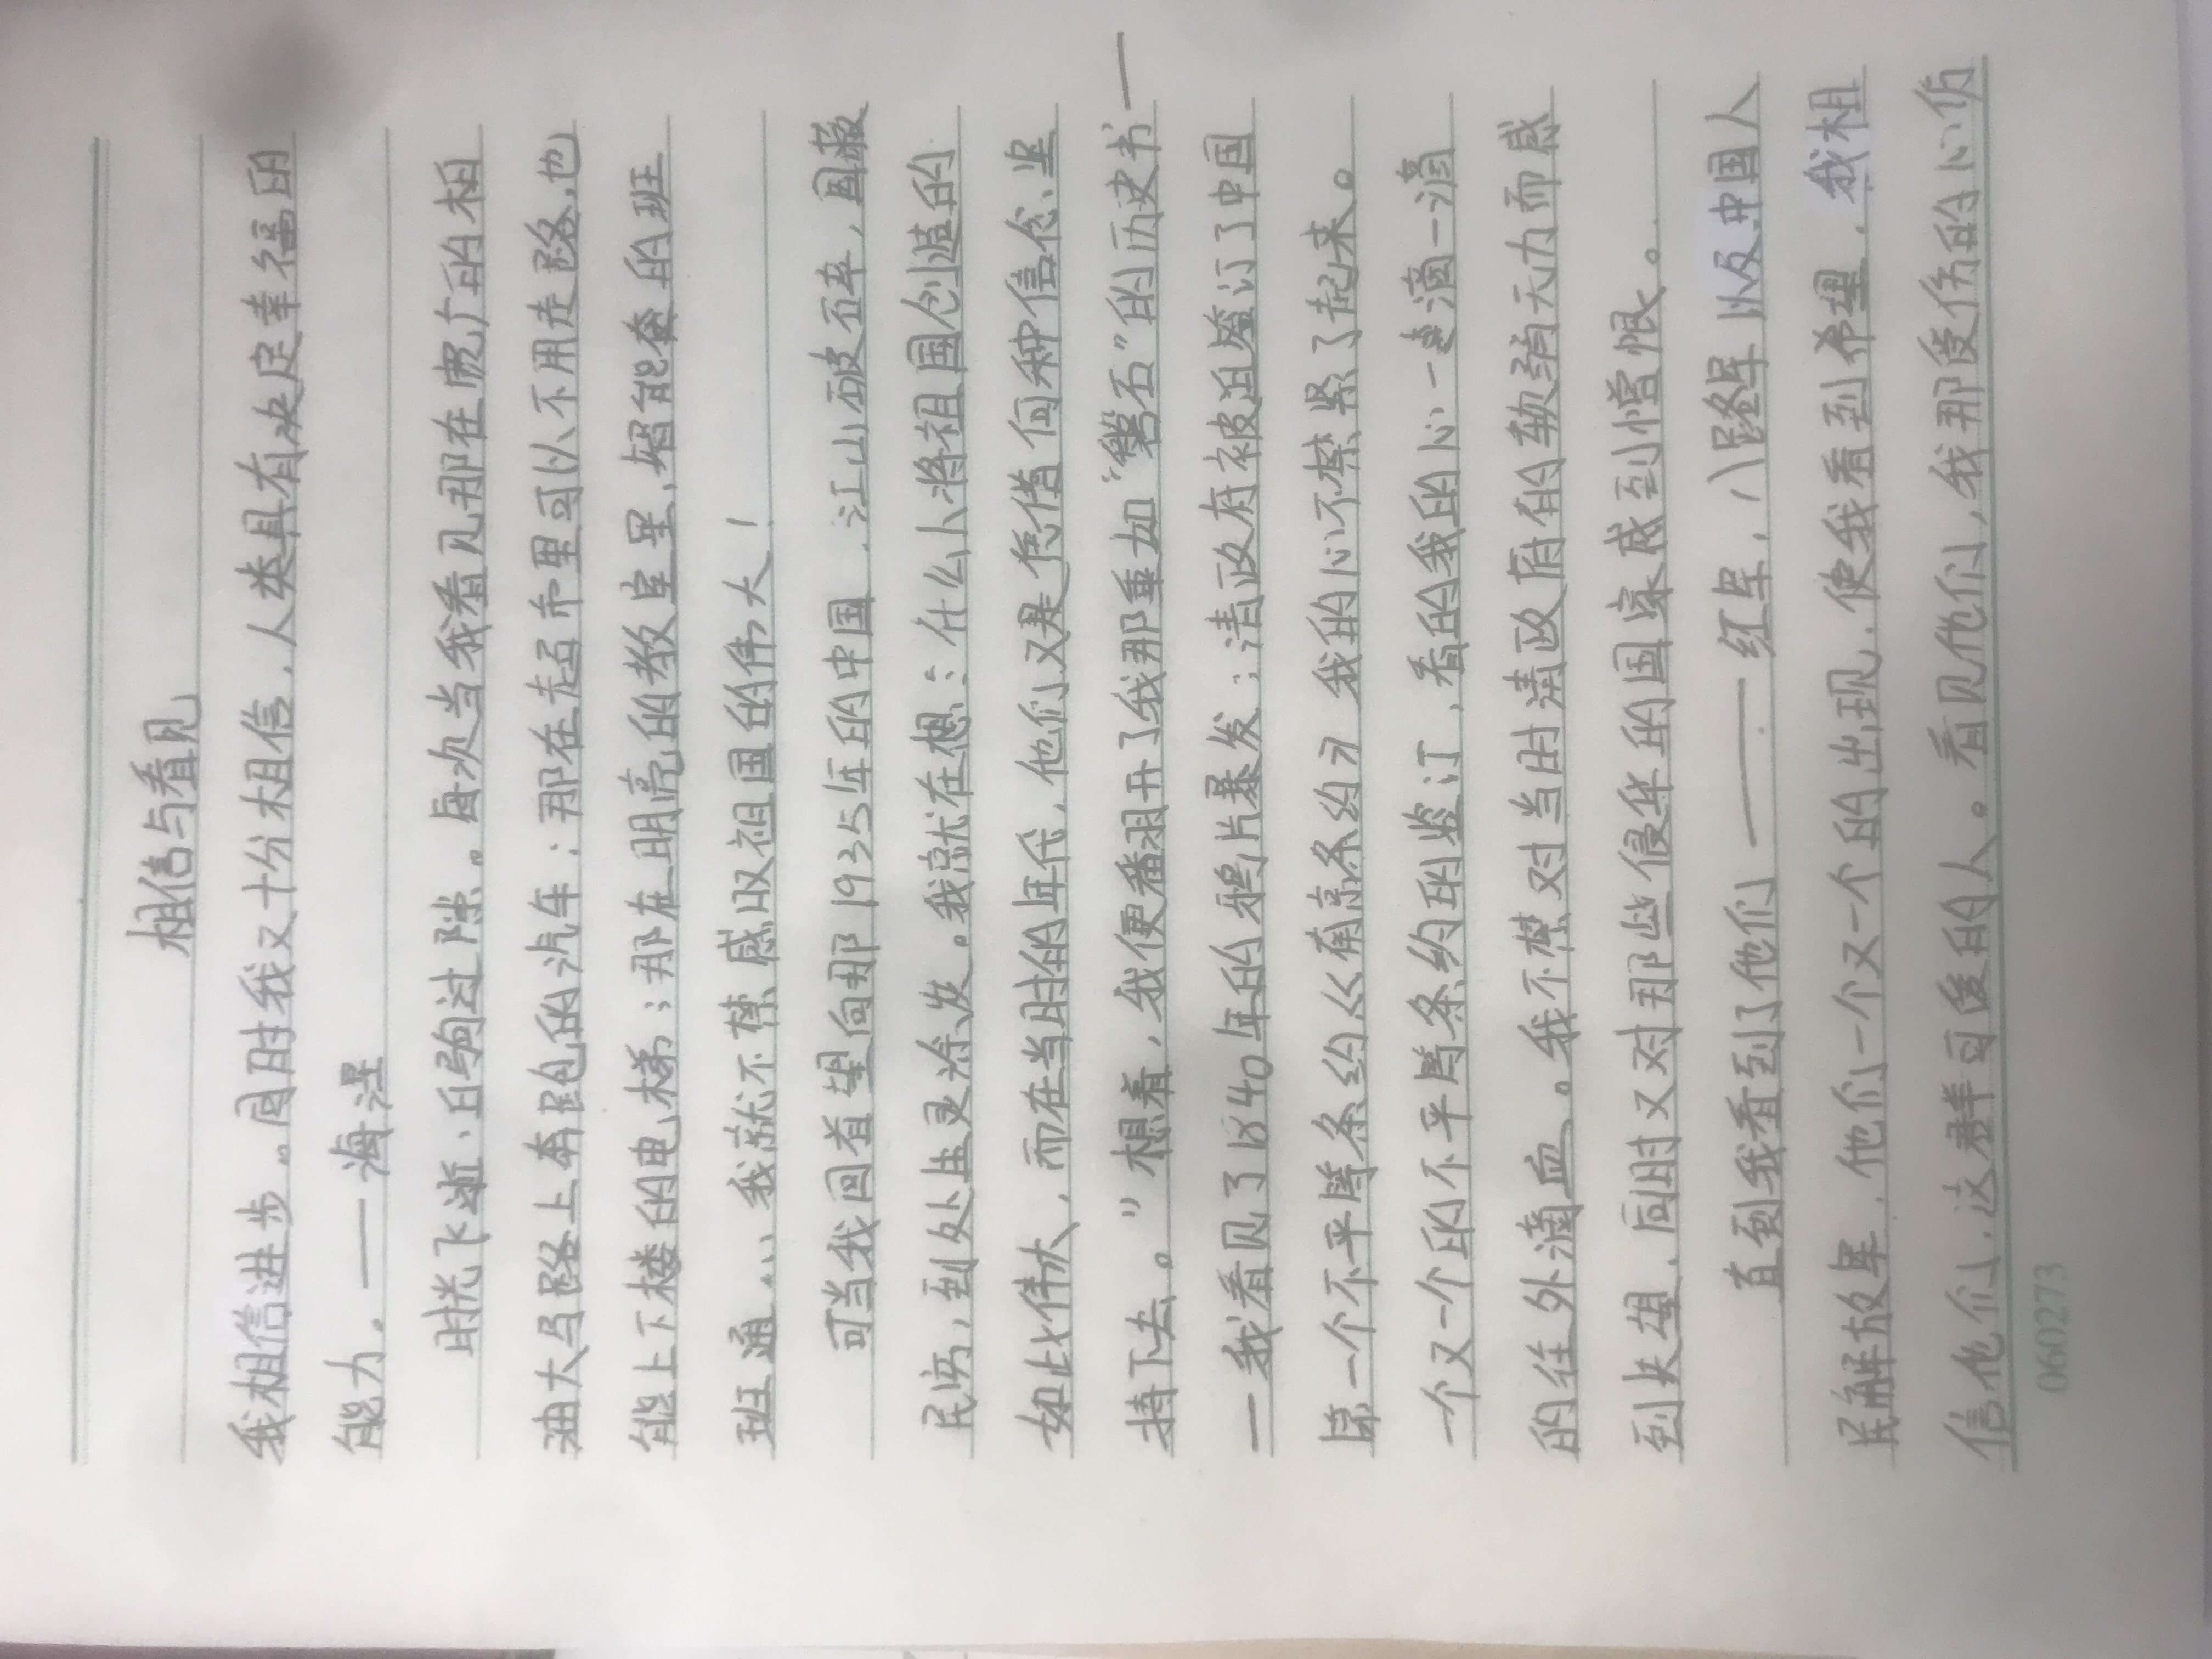 相信与看见
我相信进步。同时我又十份相信，人类具有决定幸福的
能力。——海涅
时光飞逝、白驹过隙。每次当我看见那在宽广的柏
油大马路上奔跑的汽车；那在超市里可以不用走路，也
能上下楼的电梯；那在明亮的教室里，智能套的班
班通…，我就不禁感叹祖国的伟大！
可当我回首望向那1935年的中国，江山破碎，国寂
民穷，到处生灵涂炭。我就在想：“什么人将祖国创造的
如此伟大，而在当时的年代，他们又是凭借何种信念、坚
持下去。”想着，我便翻开了我那垂如“磐石”的历史书—
—我看见了1840年的鸦片暴发；清政府被迫签订了中国
第一个不平等条约《南京条约》我的心不禁紧了起来。
一个又一个的不平等条约的监订，看的我的心一直滴一滴
的往外滴血。我不禁对当时清政府的软弱无力而感
到失望，同时又对那些侵华的国家感到憎恨。
直到我看到了他们——红军，八路军以及中国人
民解放军，他们一个又一个的出现，使我看到希望，我相
信他们，这群可爱的人。看见他们，我那受伤的心伤
060273